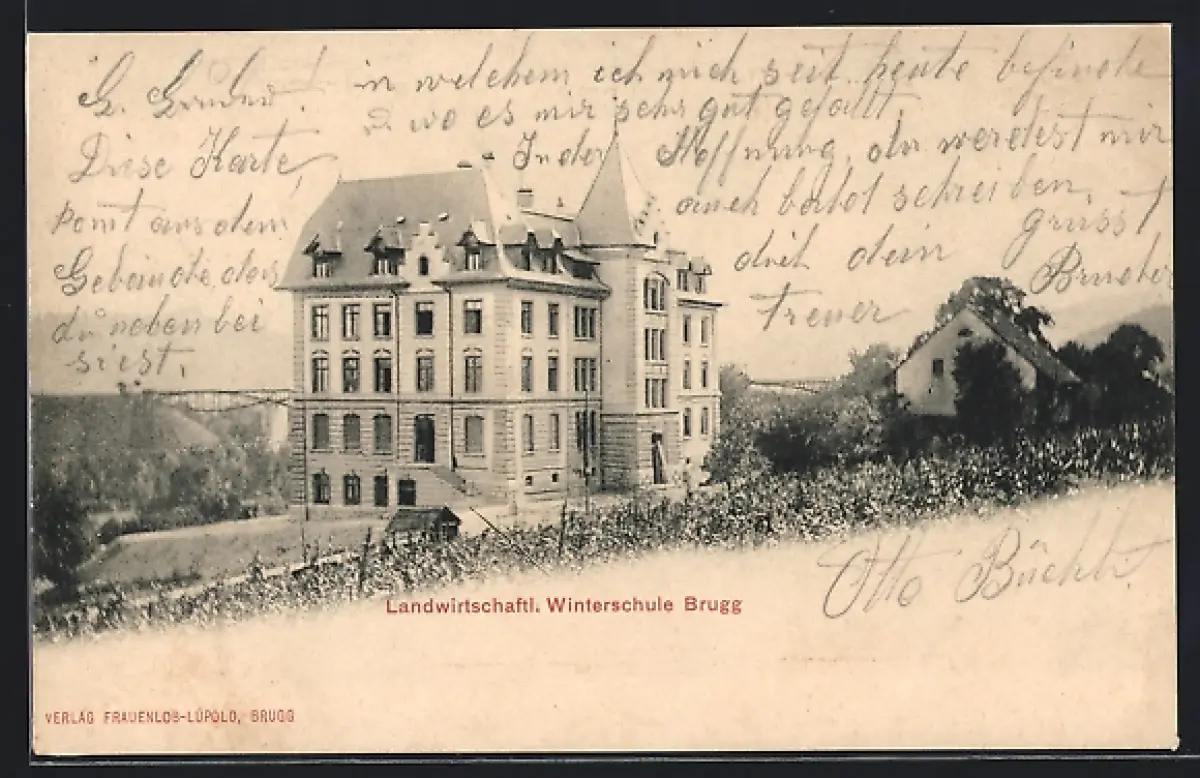 Diese Karte,
komt aus dem
Gebäude, das
du neben bei
siest,
in welchem ich mich seit heute befinde
u. wo es mir sehr gut gefällt,
In der Hoffnung, du werdest mir
auch bald schreiben,
grüsst
dich dein
treuer Bruder
Otto Büchli.
Landwirtschaftl. Winterschule Brugg
VERLAG FRAUENLOB-LÜPOLD, BRUGG